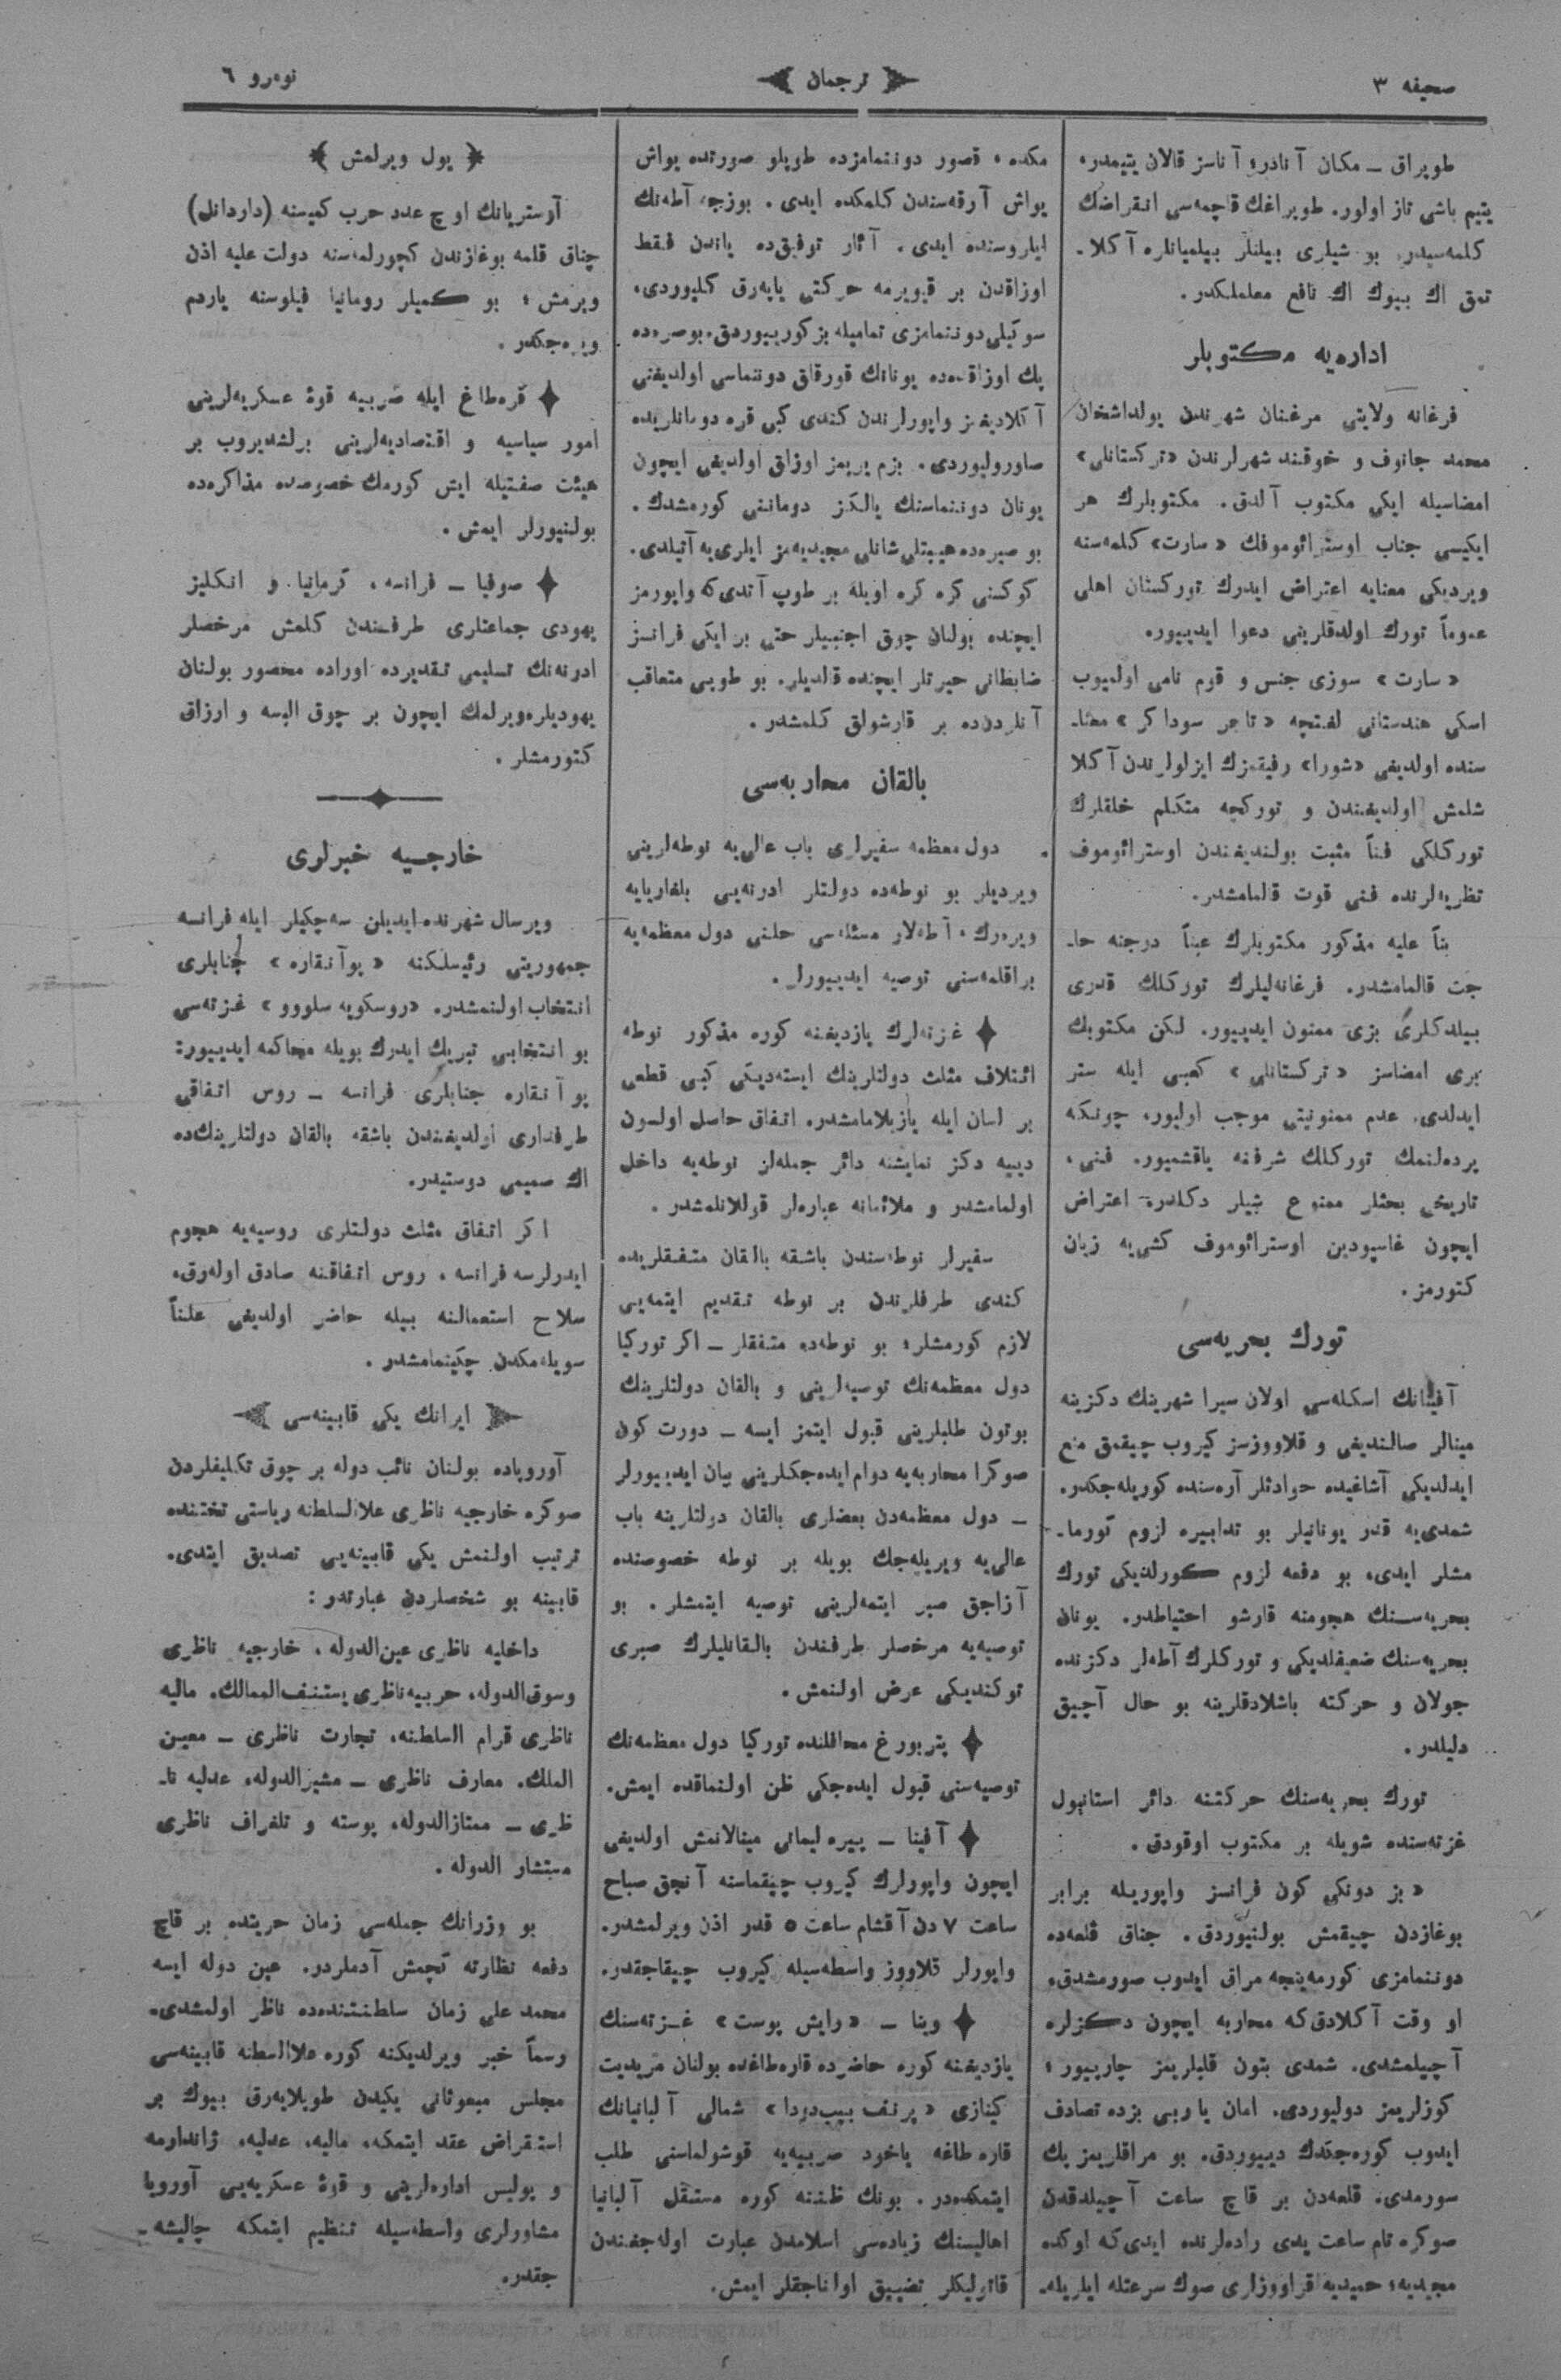 صحیفه ٣
ترجمان
نومرو ٦
طوپراق ــ مکان آنادر؛ آناسز قالان یتیمدر،
یتیم باشی تاز اولور. طوپراغك قاچمه‌سی انقراضك
کلمه‌سیدر، بو شیلری بیلنلر بیلمیانلره آکلا-
تمق اك بیوك اك نافع معلملکدر.
اداره‌یه مکتوبلر
فرغانه ولایتی مرغنان شهرندن یولداشخان
محمد جانوف و خوقند شهرلرندن «ترکستانلی»
امضاسیله ایکی مکتوب آلدق. مکتوبلرك هر
ایکیسی جناب اوسترائوموفك «سارت» کلمه‌سنه
ویردیکی معنایه اعتراض ایدرك تورکستان اهلی
عموماً تورك اولدقلرینی دعوا ایدییور.
«سارت» سوزی جنس و قوم نامی اولمیوب
اسکی هندستانی لغتچه «تاجر سوداکر» معنا-
سنده اولدیغی «شورا» رفیقمزك ایزلولرندن آکلا
شلمش اولدیغندن و تورکچه متکلم خلقلرك
تورکلکی فناً مثبت بولندیغندن اوسترائوموف
نظریه‌لرنده فنی قوت قالمامشدر.
بناً علیه مذکور مکتوبلرك عیناً درجنه حا-
جت قالمامشدر. فرغانه‌لیلرك تورکلك قدری
بیلدکلری بزی ممنون ایدییور. لکن مکتوبك
بری امضاسز «ترکستانلی» کعبی ایله ستر
ایدلدی. عدم ممنونیتی موجب اولیور، چونکه
پرده‌لنمك تورکلك شرفنه یاقشمیور. فنی،
تاریخی بحثلر ممنوع شیلر دکلدر. اعتراض
ایچون غاسپودین اوسترائوموف کشی‌یه زیان
کتورمز.
تورك بحریه‌سی
آفینانك اسکله‌سی اولان سیرا شهرینك دکزینه
مینالر صالندیغی و قلاووزسز کیروب چیقمق منع
ایدلدیکی آشاغیده حوادثلر آره‌سنده کوریله‌جکدر.
شمدی‌یه قدر یونانیلر بو تدابیره لزوم کورما-
مشلر ایدی، بو دفعه لزوم کورلدیکی تورك
بحریه‌سنك هجومنه قارشو احتیاطدر. یونان
بحریه‌سنك ضعیفلدیکی و تورکلرك آطه‌لر دکزنده
جولان و حرکته باشلادقلرینه بو حال آچیق
دلیلدر.
تورك بحریه‌سنك حرکتنه دائر استانبول
غزته‌سنده شویله بر مکتوب اوقودق.
«بز دونکی کون فرانسز واپوریله برابر
بوغازدن چیقمش بولنیوردق. جناق قلعه‌ده
دوننمامزی کورمه‌ینجه مراق ایدوب صورمشدق،
او وقت آکلادق که محاربه ایچون دکزلره
آچیلمشدی. شمدی بتون قلبلریمز چارپیور؛
کوزلریمز دولیوردی. امان یا ربی بزده تصادف
ایدوب کوره‌جکدك دیییوردق. بو مراقلریمز پك
سورمدی. قلعه‌دن بر قاچ ساعت آچیلدقدن
صوکره تام ساعت یدی راده‌لرنده ایدی که اوکده
مجیدیه؛ حمیدیه قراووزاری صوك سرعتله ایلریله-
مکده، قصور دوننمامزده طوپلو صورتده یواش
یواش آرقه‌سندن کلمکده ایدی. بوزجه آطه‌نك
ایلروسنده ایدی. آثار توفیق‌ده یاندن فقط
اوزاقدن بر قیویرمه حرکتی یاپه‌رق کلیوردی.
سوکیلی دوننمامزی تمامیله بز کوریبیوردق. بوصره‌ده
پك اوزاقده‌ده یونانك قورقاق دوننماسی اولدیغنی
آکلادیغمز واپورلرندن کندی کبی قره دومانلریده
صاورولیوردی. بزم یریمز اوزاق اولدیغی ایچون
یونان دوننماسنك یالکز دوماننی کورمشدك.
بو صیره‌ده هیبتلی شانلی مجیدیه‌مز ایلری‌یه آتیلدی.
کوکسنی کره کره اویله بر طوپ آتدی که واپورمز
ایچنده بولنان چوق اجنبیلر حتی بر ایکی فرانسز
ضابطانی حیرتلر ایچنده قالدیلر. بو طوپی متعاقب
آنلردن‌ده بر قارشولق کلمشدر.
بالقان محاربه‌سی
دول معظمه سفیرلری باب عالی‌یه نوطه‌لرینی
ویردیلر بو نوطه‌ده دولتلر ادرنه‌یی بلغاریایه
ویره‌رك، آطه‌لار مسئله‌سی حلنی دول معظمه‌یه
براقلمه‌سنی توصیه ایدییورلر.
غزته‌لرك یازدیغنه کوره مذکور نوطه
ائتلاف مثلث دولتلرینك ایسته‌دیکی کبی قطعی
بر لسان ایله یازیلامامشدر. اتفاق حاصل اولسون
دییه دکز نمایشنه دائر جمله‌لر نوطه‌یه داخل
اولمامشدر و ملائمانه عباره‌لر قوللانلمشدر.
سفیرلر نوطه‌سندن باشقه بالقان متفقلریده
کندی طرفلرندن بر نوطه تقدیم ایتمه‌یی
لازم کورمشلر؛ بو نوطه‌ده متفقلر ــ اکر تورکیا
دول معظمه‌نك توصیه‌لرینی و بالقان دولتلرینك
بوتون طلبلرینی قبول ایتمز ایسه ــ دورت کون
صوکرا محاربه‌یه دوام ایده‌جکلرینی بیان ایدییورلر
ــ دول معظمه‌دن بعضلری بالقان دولتلرینه باب
عالی‌یه ویریله‌جك بویله بر نوطه خصوصنده
آزاجق صبر ایتمه‌لرینی توصیه ایتمشلر. بو
توصیه‌یه مرخصلر طرفندن بالقانلیلرك صبری
توکندیکی عرض اولنمش.
پتربورغ محافلنده تورکیا دول معظمه‌نك
توصیه‌سنی قبول ایده‌جکی ظن اولنماقده ایمش.
آفینا ــ پیره لیمانی مینالانمش اولدیغی
ایچون واپورلرك کیروب چیقماسنه آنجق صباح
ساعت ٧ دن آقشام ساعت ٥ قدر اذن ویرلمشدر.
واپورلر قلاووز واسطه‌سیله کیروب چیقاجقدر.
وینا ــ «رایش پوست» غزته‌سنك
یازدیغنه کوره حاضرده قاره‌طاغده بولنان مریدیت
کینازی «پرنق بیب‌دودا» شمالی آلبانیانك
قاره‌طاغه یاخود صربیه‌یه قوشولماسنی طلب
ایتمکده‌در. بونك ظننه کوره مستقل آلبانیا
اهالیسنك زیاده‌سی اسلامدن عبارت اوله‌جغندن
قاتولیکلر تضییق اولناجقلر ایمش.
یول ویرلمش
آوستریانك اوچ عدد حرب کمیسنه (داردانل)
چناق قلعه بوغازندن کچورلمه‌سنه دولت علیه اذن
ویرمش؛ بو کمیلر رومانیا فیلوسنه یاردم
ویره‌جکدر.
قره‌طاغ ایله صربیه قوهٔ عسکریه‌لرینی
امور سیاسیه و اقتصادیه‌لرینی برلشدیروب بر
هیئت صفتیله ایش کورمك خصوصده مذاکره‌ده
بولنیورلر ایمش.
صوفیا ــ فرانسه، گرمانیا و انکلیز
یهودی جماعتلری طرفندن کلمش مرخصلر
ادرنه‌نك تسلیمی تقدیرده اوراده محصور بولنان
یهودیلره ویرلمك ایچون بر چوق البسه و ارزاق
کتورمشلر.
خارجیه خبرلری
ویرسال شهرنده ایدیلن سه‌چکیلر ایله فرانسه
جمهوریتی رئیسلکنه «پوآنقاره» جنابلری
انتخاب اولنمشدر. «روسکویه سلووو» غزته‌سی
بو انتخابی تبریك ایدرك بویله محاکمه ایدییور:
پوآنقاره جنابلری فرانسه ــ روس اتفاقی
طرفداری اولدیغندن باشقه بالقان دولتلرینك‌ده
اك صمیمی دوستیدر.
اکر اتفاق مثلث دولتلری روسیه‌یه هجوم
ایدرلرسه فرانسه، روس اتفاقنه صادق اوله‌رق،
سلاح استعمالنه بیله حاضر اولدیغی علناً
سویله‌مکدن چکینمامشدر.
ایرانك یکی قابینه‌سی
آوروپاده بولنان نائب دوله بر چوق تکلیفلردن
صوکره خارجیه ناظری علاالسلطنه ریاستی تختنده
ترتیب اولنمش یکی قابینه‌یی تصدیق ایتدی.
قابینه بو شخصلردن عبارتدر:
داخلیه ناظری عین‌الدوله، خارجیه ناظری
وسوق‌الدوله، حربیه ناظری یستنف‌الممالك. مالیه
ناظری قرام السلطنه، تجارت ناظری ــ معین
الملك. معارف ناظری ــ مشیرالدوله، عدلیه نا-
ظری ــ ممتازالدوله، پوسته و تلغراف ناظری
مستشار الدوله.
بو وزرانك جمله‌سی زمان حریتده بر قاچ
دفعه نظارته کچمش آدملردر. عین دوله ایسه
محمد علی زمان سلطنتنده‌ده ناظر اولمشدی.
رسماً خبر ویرلدیکنه کوره علاالسطنه قابینه‌سی
مجلس مبعوثانی یکیدن طوپلایه‌رق بیوك بر
استقراض عقد ایتمکه، مالیه، عدلیه، ژاندارمه
و پولیس اداره‌لرینی و قوهٔ عسکریه‌یی آوروپا
مشاورلری واسطه‌سیله تنظیم ایتمکه چالیشه-
جقدر.